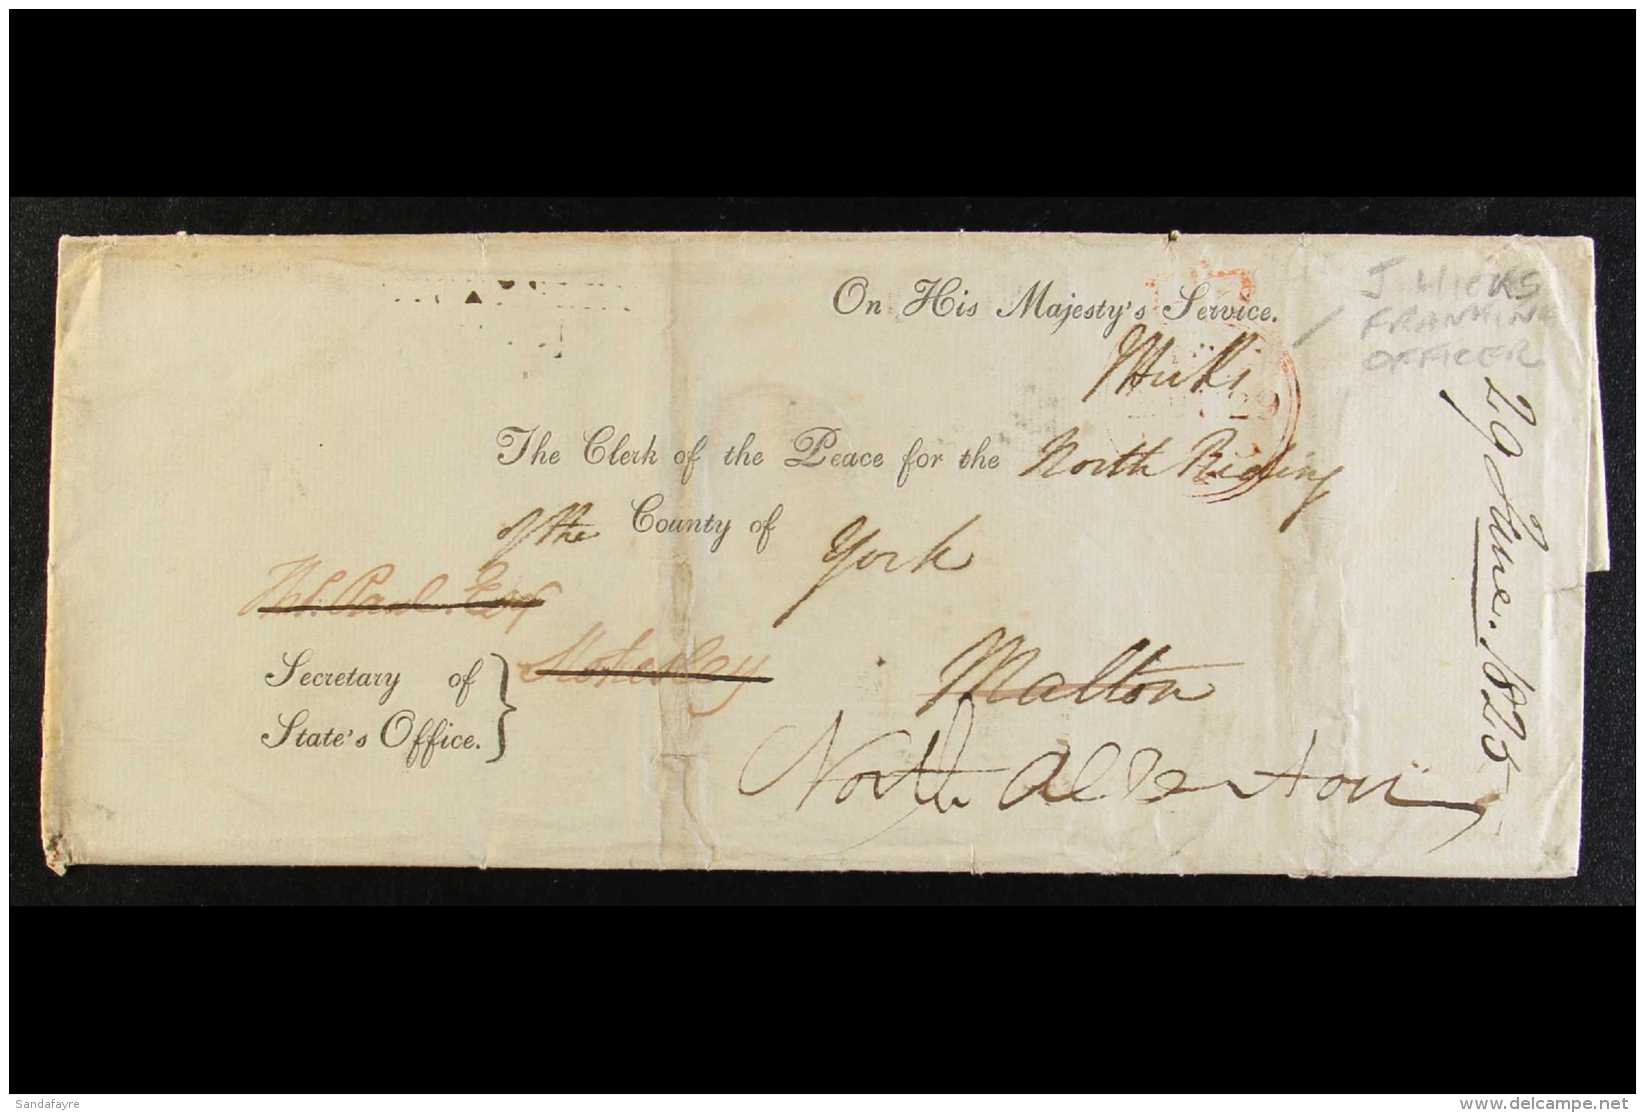 On His Majesty's Service.
J Hicks
FRANKING
OFFICER
JHicks
29
The Clerk of the Peace for the North Riding
of the County of York
Wm. Paul. Esq
Stokesley
Secretary of
State's Office.
Malton
North Allerton
29 June. 1825
Sandafayre
delcampe.net